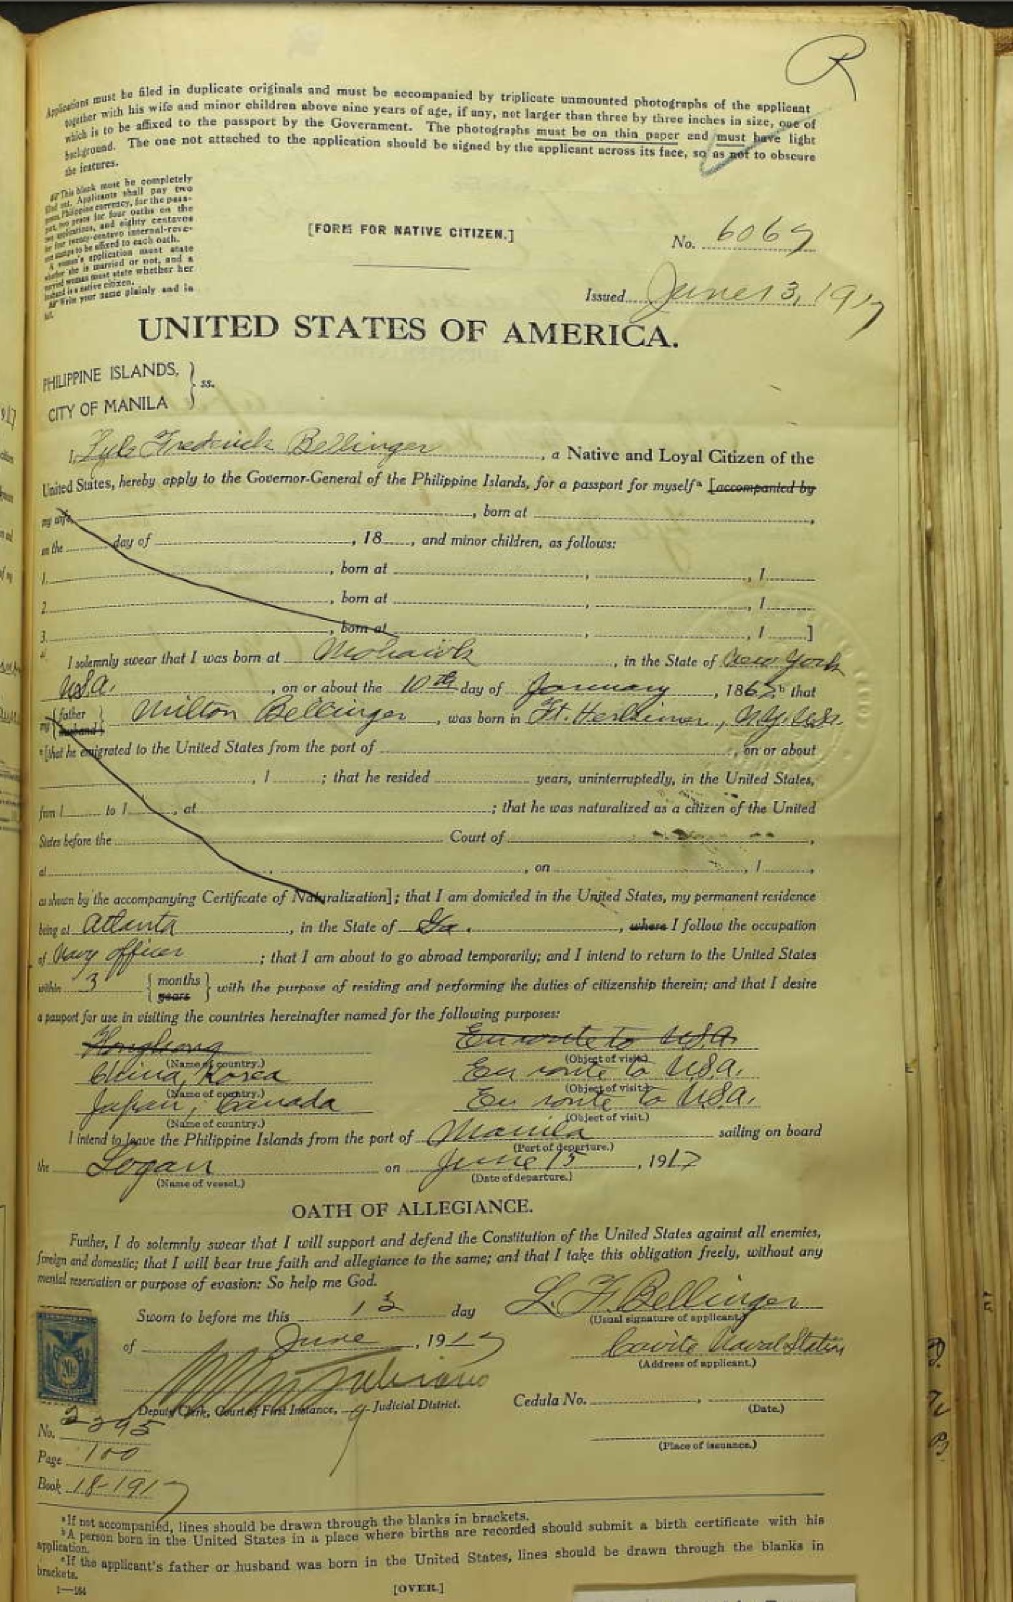 R
Applications must be filed in duplicate originals and must be accompanied by triplicate unmounted photographs of the applicant
together with his wife and minor children above nine years of age, if any, not larger than three by three inches in size, one of
which is to be affixed to the passport by the Government. The photographs must be on thin paper and must have light
background. The one not attached to the application should be signed by the applicant across its face, so as not to obscure
the features.
This blank must be completely
filled out. Applicants shall pay two
pesos, Philippine currency, for the pass-
port, two pesos for four oaths on the
two applications, and eighty centavos
for four twenty-centavo internal-reve-
nue stamps to be affixed to each oath.
A woman's application must state
whether she is married or not, and a
married woman must state whether her
husband is a native citizen.
Write your name plainly and in
full.
[FORM FOR NATIVE CITIZEN.]
No. 6067
Issued June 13, 1917
UNITED STATES OF AMERICA.
PHILIPPINE ISLANDS,
CITY OF MANILA } ss.
I, Lyle Frederick Bellinger, a Native and Loyal Citizen of the
United States, hereby apply to the Governor-General of the Philippine Islands, for a passport for myself a [accompanied by
my wife, , born at ,
on the day of , 18 , and minor children, as follows:
1. , born at , , 1
2. , born at , , 1
3. , born at , , 1 ]
I solemnly swear that I was born at Mohawk, in the State of New York
U.S.A., on or about the 10th day of January, 186 b that
my { father husband } Milton Bellinger, was born in Ft. Herkimer, N.Y. U.S.
c [that he emigrated to the United States from the port of , on or about
, 1 ; that he resided years, uninterruptedly, in the United States,
from 1 to 1 , at ; that he was naturalized as a citizen of the United
States before the Court of ,
at , on , 1 ,
as shown by the accompanying Certificate of Naturalization]; that I am domiciled in the United States, my permanent residence
being at Atlanta, in the State of Ga., where I follow the occupation
of Navy officer; that I am about to go abroad temporarily; and I intend to return to the United States
within 3 { months years } with the purpose of residing and performing the duties of citizenship therein; and that I desire
a passport for use in visiting the countries hereinafter named for the following purposes:
Hongkong En route to U.S.A.
(Name of country.) (Object of visit.)
China, Korea En route to U.S.A.
(Name of country.) (Object of visit.)
Japan, Canada En route to U.S.A.
(Name of country.) (Object of visit.)
I intend to leave the Philippine Islands from the port of Manila sailing on board
(Port of departure.)
the Logan on June 15, 1917
(Name of vessel.) (Date of departure.)
OATH OF ALLEGIANCE.
Further, I do solemnly swear that I will support and defend the Constitution of the United States against all enemies,
foreign and domestic; that I will bear true faith and allegiance to the same; and that I take this obligation freely, without any
mental reservation or purpose of evasion: So help me God.
Sworn to before me this 13 day
of June, 1917
L. F. Bellinger
(Usual signature of applicant.)
Cavite Naval Station
(Address of applicant.)
Deputy Clerk, Court of First Instance, 9 Judicial District.
Cedula No. ,
(Date.)
(Place of issuance.)
No. 2395
Page 100
Book 18-1917
a If not accompanied, lines should be drawn through the blanks in brackets.
b A person born in the United States in a place where births are recorded should submit a birth certificate with his
application.
c If the applicant's father or husband was born in the United States, lines should be drawn through the blanks in
brackets.
1—164
[OVER.]